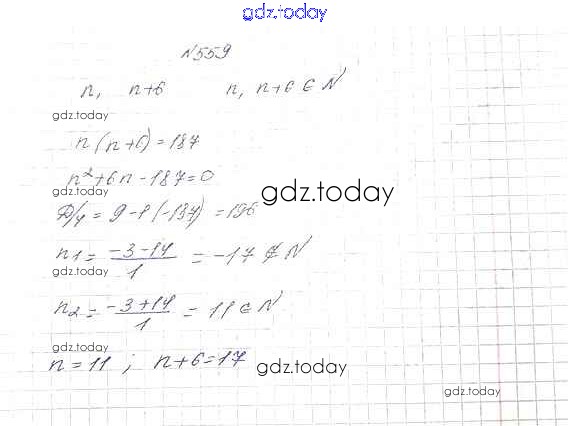 gdz.today
№559
n, n+6 n, n+6 ∈ N
gdz.today
n(n+6)=187
n²+6n-187=0
gdz.today
gdz.today
D/4 = 9-1(-187)=196
n1 = (-3-14)/1 = -17 ∉ N
gdz.today
n2 = (-3+14)/1 = 11 ∈ N
gdz.today
n=11 ; n+6=17
gdz.today
gdz.today